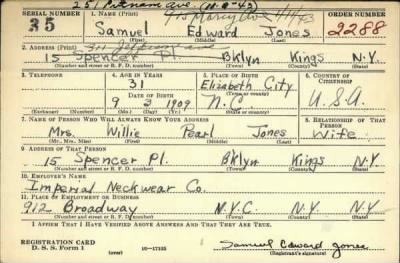 251 Putnam ave. (11-8-43)
SERIAL NUMBER 1. NAME (Print) ORDER NUMBER
35 Samuel Edward Jones 2288
(First) (Middle) (Last)
2. ADDRESS (Print)
15 Spencer Pl. Bklyn Kings N.Y.
(Number and street or R. F. D. number) (Town) (County) (State)
3. TELEPHONE 4. AGE IN YEARS 5. PLACE OF BIRTH 6. COUNTRY OF CITIZENSHIP
31 Elizabeth City
DATE OF BIRTH (Town or county)
9 3 1909 N.C. U.S.A.
(Exchange) (Number) (Mo.) (Day) (Yr.) (State or country)
7. NAME OF PERSON WHO WILL ALWAYS KNOW YOUR ADDRESS 8. RELATIONSHIP OF THAT PERSON
Mrs. Willie Pearl Jones Wife
(Mr., Mrs., Miss) (First) (Middle) (Last)
9. ADDRESS OF THAT PERSON
15 Spencer Pl. Bklyn Kings N.Y.
(Number and street or R. F. D. number) (Town) (County) (State)
10. EMPLOYER'S NAME
Imperial Neckwear Co.
11. PLACE OF EMPLOYMENT OR BUSINESS
912 Broadway N.Y.C. N.Y. N.Y.
(Number and street or R. F. D. number) (Town) (County) (State)
I AFFIRM THAT I HAVE VERIFIED ABOVE ANSWERS AND THAT THEY ARE TRUE.
REGISTRATION CARD
D. S. S. Form 1 (over) 16-17105 Samuel Edward Jones
(Registrant's signature)